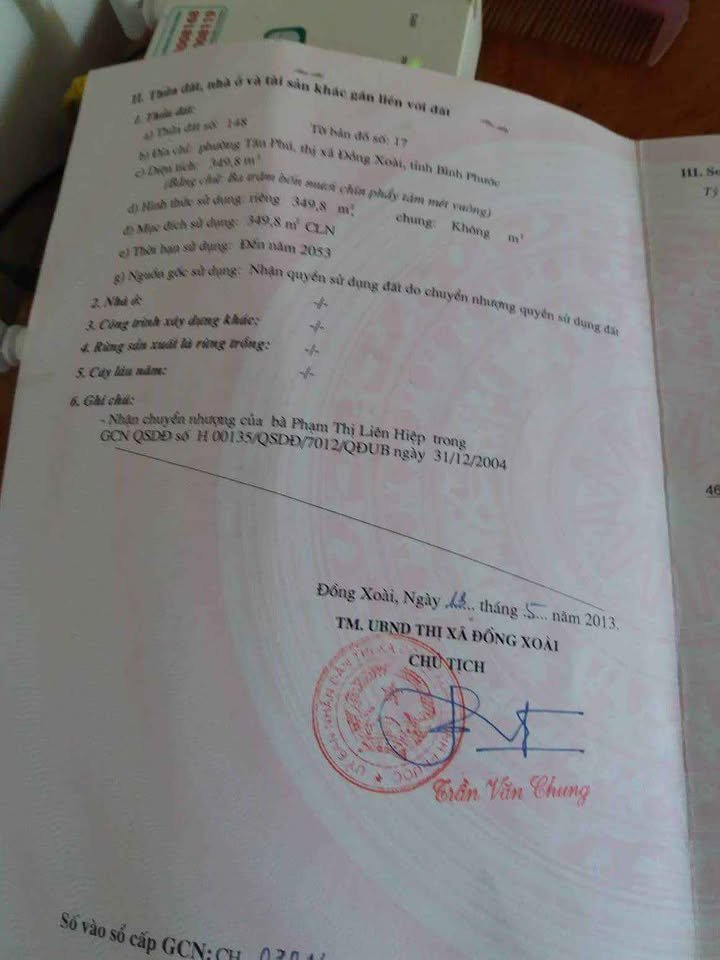 II. Thửa đất, nhà ở và tài sản khác gắn liền với đất
1. Thửa đất:
a) Thửa đất số: 148 Tờ bản đồ số: 17
b) Địa chỉ: phường Tân Phú, thị xã Đồng Xoài, tỉnh Bình Phước
c) Diện tích: 349,8 m²
(Bằng chữ: Ba trăm bốn mươi chín phẩy tám mét vuông)
d) Hình thức sử dụng: riêng 349,8 m², chung: Không m²
đ) Mục đích sử dụng: 349,8 m² CLN
e) Thời hạn sử dụng: Đến năm 2053
g) Nguồn gốc sử dụng: Nhận quyền sử dụng đất do chuyển nhượng quyền sử dụng đất
2. Nhà ở: -/-
3. Công trình xây dựng khác: -/-
4. Rừng sản xuất là rừng trồng: -/-
5. Cây lâu năm: -/-
6. Ghi chú:
- Nhận chuyển nhượng của bà Phạm Thị Liên Hiệp trong
GCN QSDĐ số H 00135/QSDĐ/7012/QĐUB ngày 31/12/2004
Đồng Xoài, Ngày 13... tháng .5... năm 2013.
TM. UBND THỊ XÃ ĐỒNG XOÀI
CHỦ TỊCH
Trần Văn Chung
Số vào sổ cấp GCN: CH
III. S
46